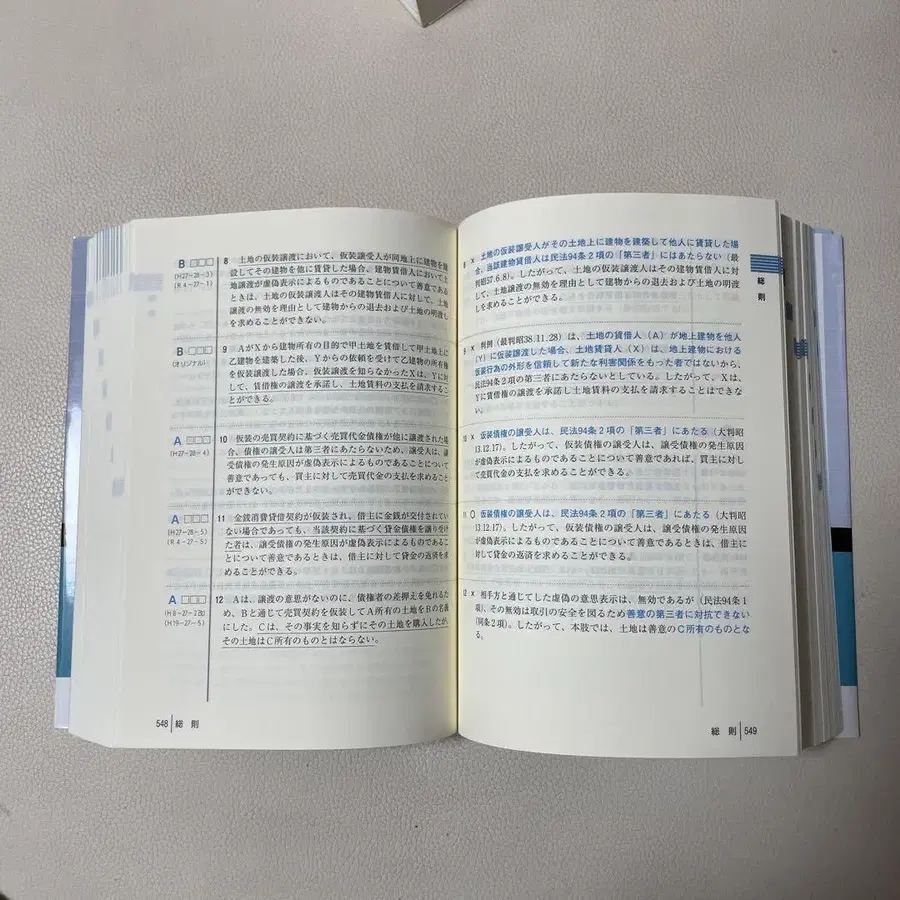 B □□□
(H27-28-3)
(R4-27-1)
8 土地の仮装譲渡において、仮装譲受人が同地上に建物を建
設してその建物を他に賃貸した場合、建物賃借人において土
地譲渡が虚偽表示によるものであることについて善意である
ときは、土地の仮装譲渡人はその建物賃借人に対して、土地
譲渡の無効を理由として建物からの退去および土地の明渡し
を求めることができない。
B □□□
(オリジナル)
9 AがXから建物所有の目的で甲土地を賃借して甲土地上に
乙建物を建築した後、Yからの依頼を受けて乙建物の所有権
をYに仮装譲渡した。仮装譲渡を知らなかったXは、Yに対
して、賃借権の譲渡を承諾し、土地賃料の支払を請求するこ
とができる。
A □□□
(H27-28-4)
10 仮装の売買契約に基づく売買代金債権が他に譲渡された場
合、債権の譲受人は第三者にあたらないため、譲受人は、譲
受債権の発生原因が虚偽表示によるものであることについて
善意であっても、買主に対して売買代金の支払を求めること
ができない。
A □□□
(H27-28-5)
(R4-27-5)
11 金銭消費貸借契約が仮装され、借主に金銭が交付されてい
ない場合であっても、当該契約に基づく貸金債権を譲り受け
た者は、譲受債権の発生原因が虚偽表示によるものであるこ
とについて善意であるときは、借主に対して貸金の返済を求
めることができる。
A □□□
(H8-27-2改)
(H19-27-5)
12 Aは、譲渡の意思がないのに、債権者の差押えを免れるた
め、Bと通じて売買契約を仮装してA所有の土地をBの名義
にした。Cは、その事実を知らずにその土地を購入したが、
その土地はC所有のものとはならない。
548 総則
8 × 土地の仮装譲受人がその土地上に建物を建築して他人に賃貸した場
合、当該建物賃借人は民法94条2項の「第三者」にはあたらない(最
判昭57.6.8)。したがって、土地の仮装譲渡人はその建物賃借人に対
して、土地譲渡の無効を理由として建物からの退去および土地の明渡
しを求めることができる。
9 × 判例(最判昭38.11.28)は、土地の賃借人(A)が地上建物を他人
(Y)に仮装譲渡した場合、土地賃貸人(X)は、地上建物における
仮装行為の外形を信頼して新たな利害関係をもった者ではないから、
民法94条2項の第三者にあたらないとしている。したがって、Xは、
Yに賃借権の譲渡を承諾し土地賃料の支払を請求することはできな
い。
10 × 仮装債権の譲受人は、民法94条2項の「第三者」にあたる(大判昭
13.12.17)。したがって、仮装債権の譲受人は、譲受債権の発生原因
が虚偽表示によるものであることについて善意であれば、買主に対し
て売買代金の支払を求めることができる。
11 ○ 仮装債権の譲受人は、民法94条2項の「第三者」にあたる(大判昭
13.12.17)。したがって、仮装債権の譲受人は、譲受債権の発生原因
が虚偽表示によるものであることについて善意であるときは、借主
に対して貸金の返済を求めることができる。
12 × 相手方と通じてした虚偽の意思表示は、無効であるが(民法94条1
項)、その無効は取引の安全を図るため善意の第三者に対抗できない
(同条2項)。したがって、本肢では、土地は善意のC所有のものとな
る。
総則
総則 549